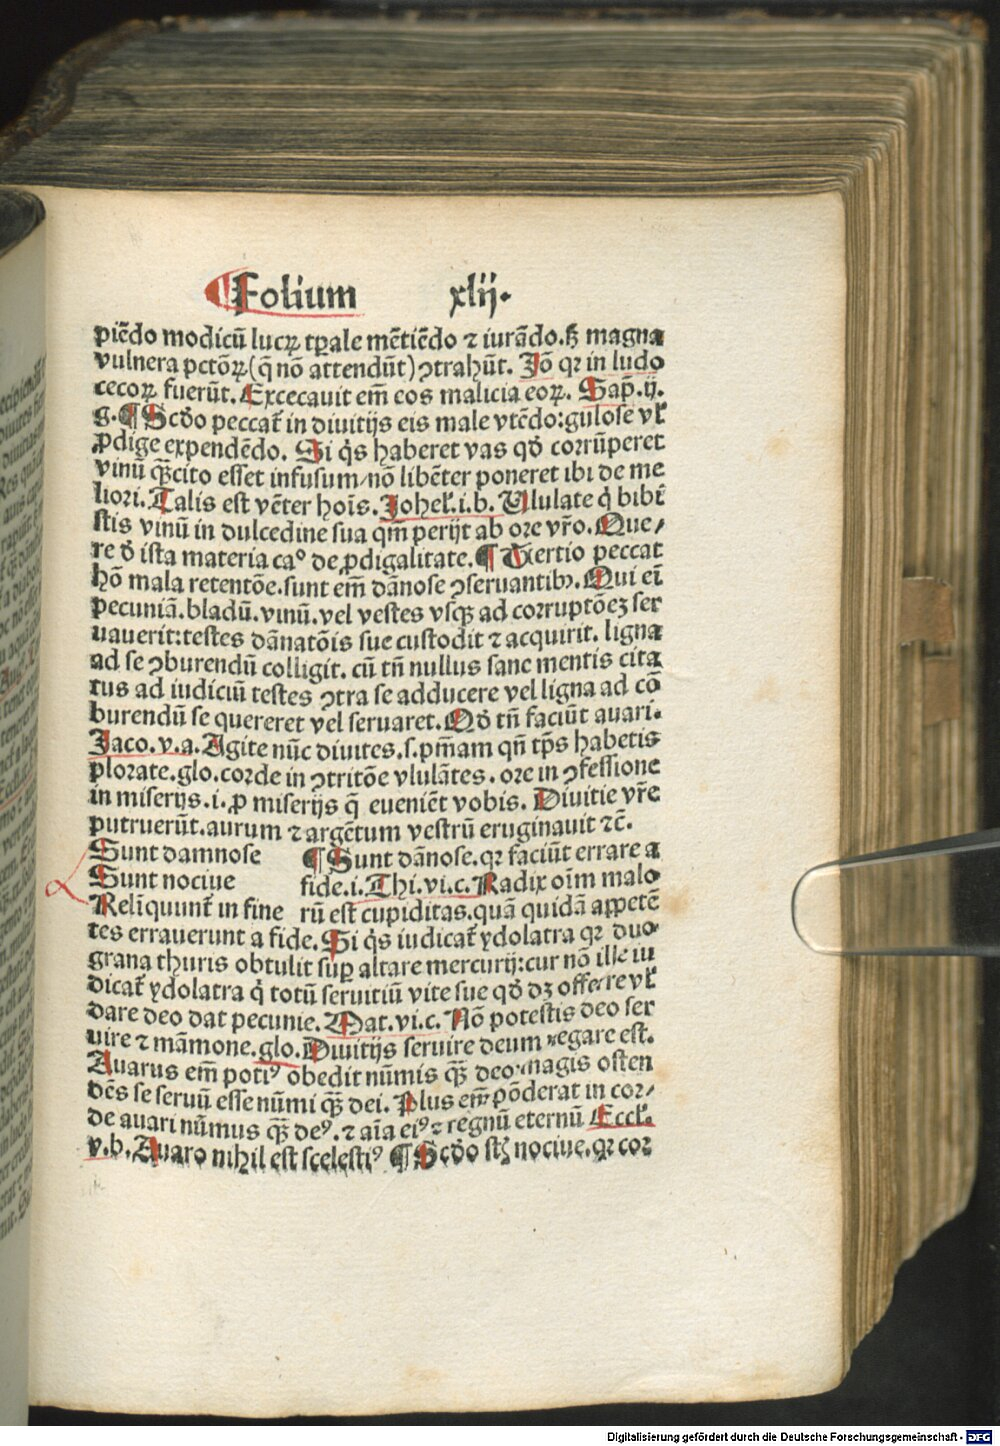 ¶ Folium xlij.
piēdo modicū lucꝝ tꝑale mētiēdo ⁊ iurādo. sꝫ magna
vulnera pctōꝝ (q̄ nō attendūt) ꝯtrahūt. Jō qꝛ in ludo
cecoꝝ fuerūt. Excecauit em̄ eos malicia eoꝝ. Sap̄. ij.
g. ¶ Scḋo peccat̄ in diuitijs eis male vtēdo: gulose vl̕
ꝓdige expendēdo. Si q̇s haberet vas qḋ corrūperet
vinū qꝫcito esset infusum / nō libēter poneret ibi de me
liori. Talis est vēter hoīs. Johel̕. i. b. Ululate q̇ bibi
stis vinū in dulcedine sua qm̄ perijt ab ore vr̄o. Que⸗
re ḋ ista materia caº de ꝓdigalitate. ¶ Tertio peccat
hō mala retentōe. sunt em̄ dānose ꝯseruantibꝰ. Qui ei
pecuniā. bladū. vinū. vel vestes vsqꝫ ad corruptōeꝫ ser
uauerit: testes dānatōis sue custodit ⁊ acquirit. ligna
ad se ꝯburendū colligit. cū tn̄ nullus sane mentis cita
tus ad iudiciū testes ꝯtra se adducere vel ligna ad cō
burendū se quereret vel seruaret. Qḋ tn̄ faciūt auari.
Jaco. v. a. Agite nūc diuites. s. pm̄am qn̄ tp̄s habetis
plorate. glo. corde in ꝯtritōe vlulātes. ore in ꝯfessione
in miserijs. i. ꝓ miserijs q̄ eueniēt vobis. Diuitie vr̄e
putruerūt. aurum ⁊ argētum vestrū eruginauit ⁊c̄.
Sunt damnose
Sunt nociue
Reliquunt̄ in fine
¶ Sunt dānose. qꝛ faciūt errare a
fide. i. Thi. vi. c. Radix oīm malo
rū est cupiditas. quā quidā appetē
tes errauerunt a fide. Si q̇s iudicat̄ ydolatra qꝛ duo
grana thuris obtulit suꝑ altare mercurij: cur nō ille iu
dicat̄ ydolatra q̇ totū seruitiū vite sue qḋ dꝫ offerre vl̕
dare deo dat pecunie. Mat. vi. c. Nō potestis deo ser
uire ⁊ māmone. glo. Diuitijs seruire deum negare est.
Auarus em̄ potiꝰ obedit nūmis qꝫ deo. magis osten
dēs se seruū esse nūmi qꝫ dei. Plus em̄ pōderat in cor⸗
de auari nūmus qꝫ deꝰ. ⁊ aīa eiꝰ ⁊ regnū eternū Eccl̕.
v. b. Auaro nihil est scelestiꝰ ¶ Scḋo st̄ nociue. qꝛ cor
Digitalisierung gefördert durch die Deutsche Forschungsgemeinschaft - DFG